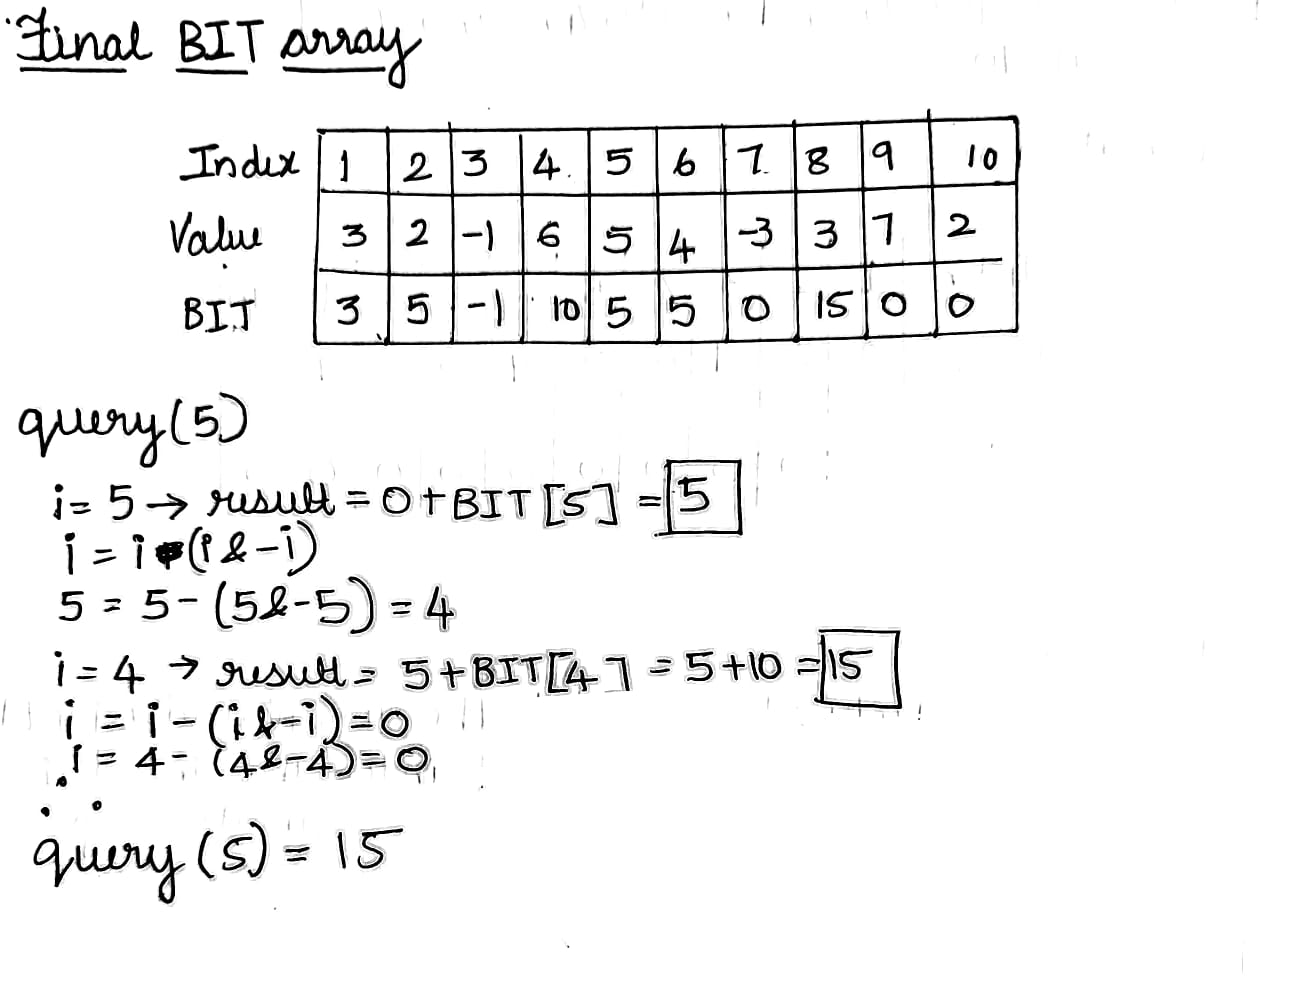 Final BIT array
Index 1 2 3 4 5 6 7 8 9 10
Value 3 2 -1 6 5 4 -3 3 7 2
BIT 3 5 -1 10 5 5 0 15 0 0
query(5)
i= 5 → result = 0+BIT[5] = 5
i = i-(i&-i)
5 = 5-(5&-5) = 4
i = 4 → result = 5+BIT[4] = 5+10 = 15
i = i-(i&-i)=0
i = 4-(4&-4)=0
∴ query(5) = 15